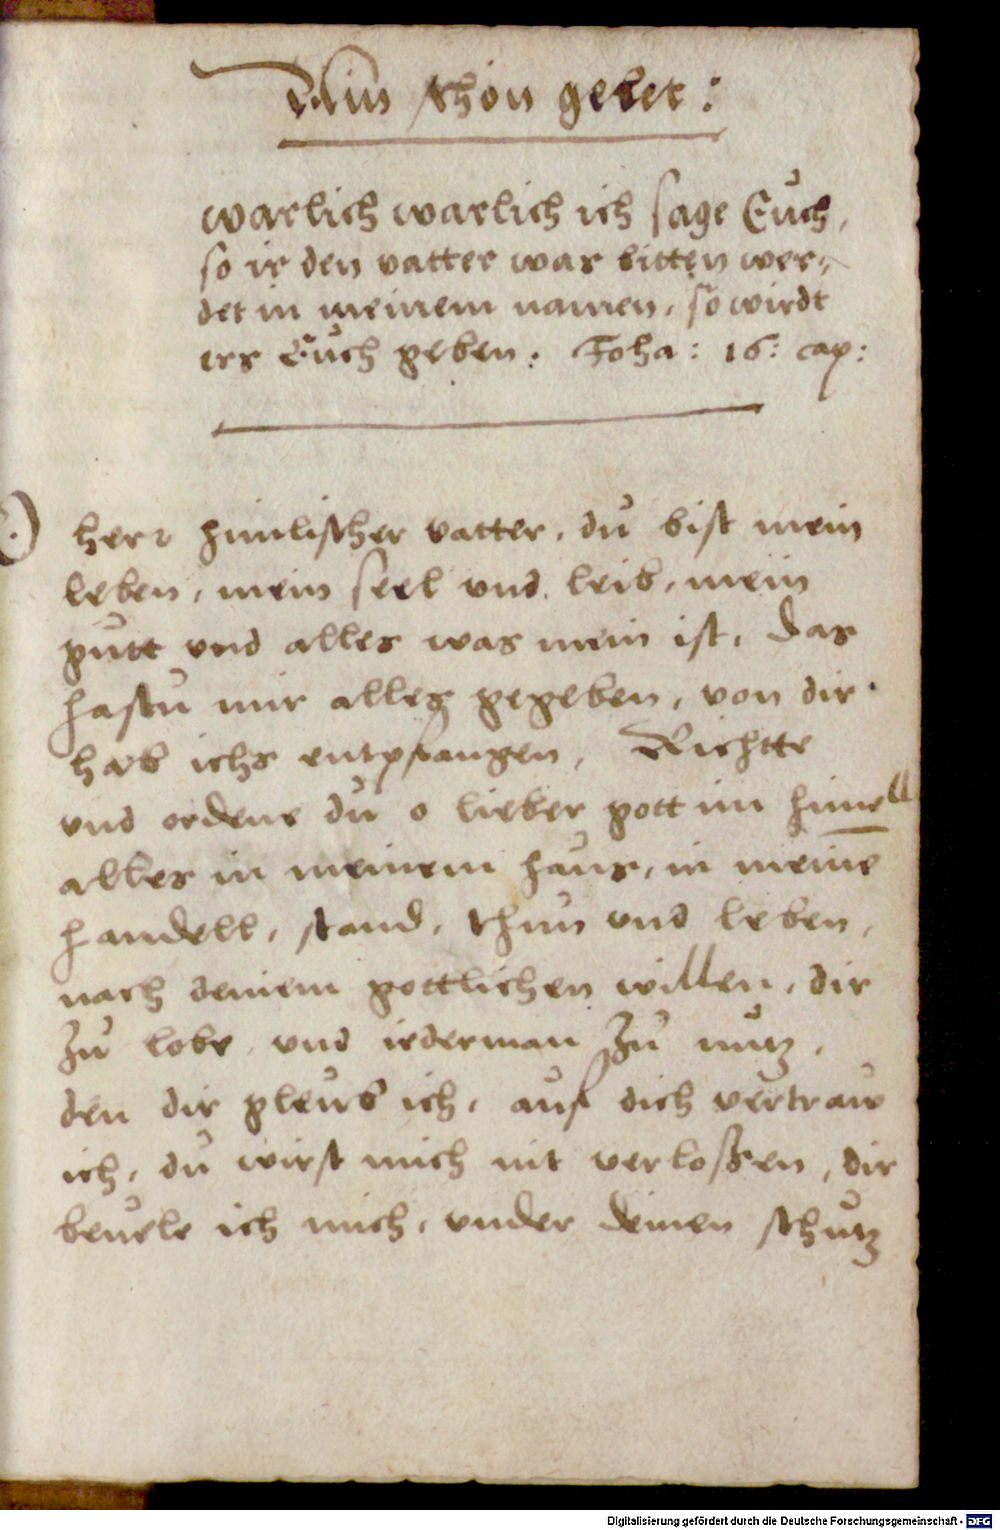 Ain schon gebet:
warlich warlich ich sage Euch,
so ir den vatter was bitten wer-
det in meinem namen, so wirdt
ers Euch geben: Joha: 16: cap:
O) herr himlischer vatter, du bist mein
leben, mein seel und leib, mein
gutt und alles was mein ist, das
hastu mir alles gegeben, von dir
hab ichs entpfangen, Richtte
und ordene du o lieber gott im himell
alles in meinem haus, in meinē
handell, stand, thun und leben,
nach deinem gottlichen willen, dir
zu lobe, und iederman zu nutz,
den dir gleub ich, auf dich vertraw
ich, du wirst mich nit verloßen, dir
beuele ich mich, under deinen schutz
Digitalisierung gefördert durch die Deutsche Forschungsgemeinschaft - DFG